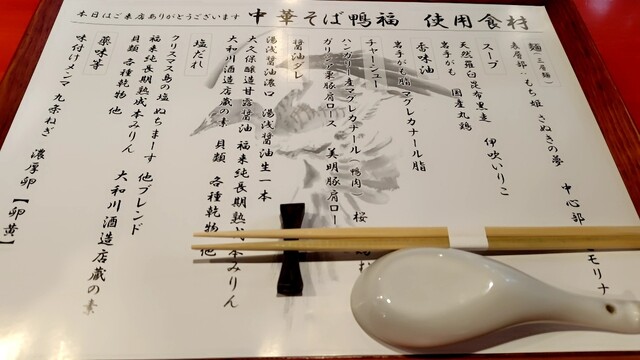 本日はご来店ありがとうございます
中華そば鴨福 使用食材
麺（三層麺）
表層部：もち姫 さぬきの夢
中心部
モリナ
スープ
天然羅臼昆布黒走 伊吹いりこ
岩手がも 国産丸鶏
香味油
岩手がも脂 マグレカナール脂
チャーシュー
ハンガリー産マグレカナール（鴨肉） 桜
ガリシア栗豚肩ロース 美明豚肩ロー
醤油ダレ
湯浅醤油濃口 湯浅醤油生一本
大久保醸造甘露醤油 福来純長期熟成本みりん
大和川酒造店蔵の素 貝類 各種乾物 他
塩だれ
クリスマス島の塩 ぬちまーす 他ブレンド
福来純長期熟成本みりん 大和川酒造店蔵の素
貝類 各種乾物 他
薬味等
味付けメンマ 九条ねぎ 濃厚卵【卵黄】